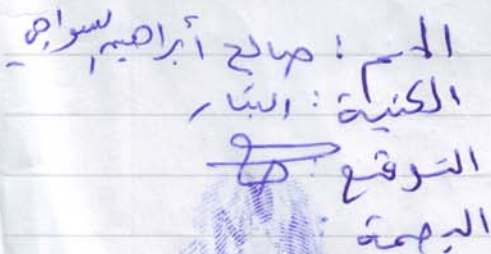 الاسم : صالح أبراهيم السواحي
الكنية : البتار
التوقيع :
البصمة :